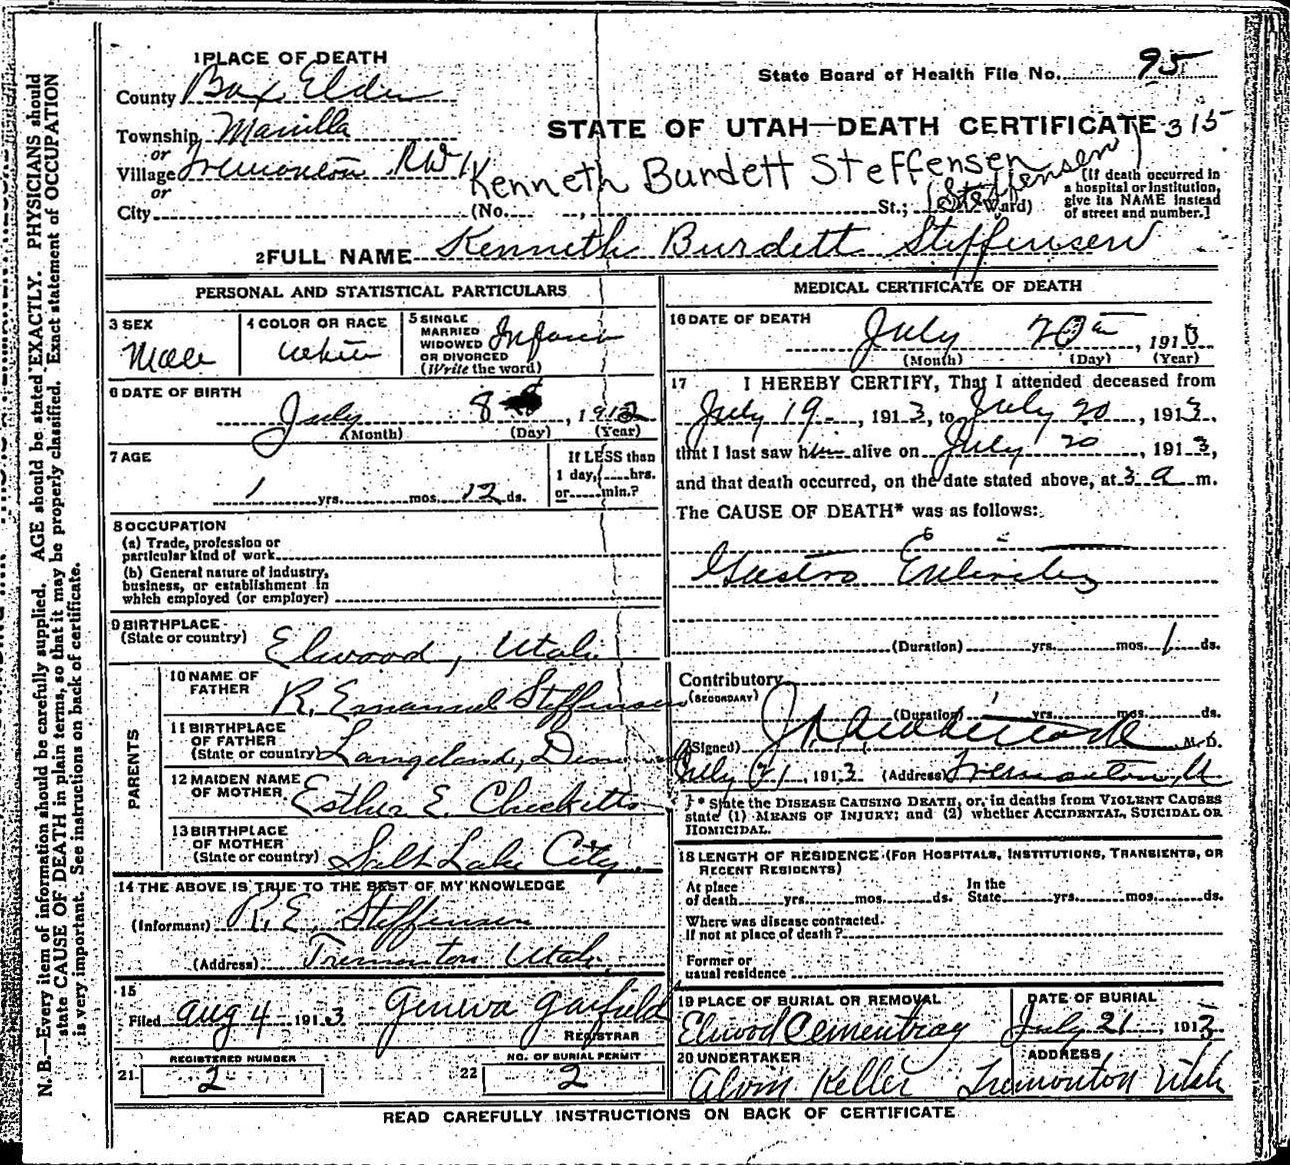 1 PLACE OF DEATH
County Box Elder
State Board of Health File No. 95
Township Manilla
or
STATE OF UTAH—DEATH CERTIFICATE 315
Village Tremonton
or
Kenneth Burdett Steffensen
(Steffensen)
City (No. , St.; Ward)
[If death occurred in
a hospital or institution,
give its NAME instead
of street and number.]
2 FULL NAME Kenneth Burdett Steffensen
PERSONAL AND STATISTICAL PARTICULARS
3 SEX
Male
4 COLOR OR RACE
White
5 SINGLE
MARRIED
WIDOWED
OR DIVORCED
(Write the word)
Infant
6 DATE OF BIRTH
July 8, 1912
(Month) (Day) (Year)
7 AGE
1 yrs. mos. 12 ds.
If LESS than
1 day, hrs.
or min.?
8 OCCUPATION
(a) Trade, profession or
particular kind of work
(b) General nature of industry,
business, or establishment in
which employed (or employer)
9 BIRTHPLACE
(State or country) Elwood, Utah
PARENTS
10 NAME OF
FATHER R. Emanuel Steffensen
11 BIRTHPLACE
OF FATHER
(State or country) Langeland, Denmark
12 MAIDEN NAME
OF MOTHER Esther E. Checketts
13 BIRTHPLACE
OF MOTHER
(State or country) Salt Lake City
14 THE ABOVE IS TRUE TO THE BEST OF MY KNOWLEDGE
(Informant) R. E. Steffensen
(Address) Tremonton Utah
15
Filed Aug 4 1913 Geneva Garfield
REGISTRAR
REGISTERED NUMBER
21 2
NO. OF BURIAL PERMIT
22 2
MEDICAL CERTIFICATE OF DEATH
16 DATE OF DEATH
July 20th, 1913
(Month) (Day) (Year)
17 I HEREBY CERTIFY, That I attended deceased from
July 19, 1913, to July 20, 1913,
that I last saw him alive on July 20, 1913,
and that death occurred, on the date stated above, at 3 a m.
The CAUSE OF DEATH* was as follows:
Gastro Enteritis
(Duration) yrs. mos. 1 ds.
Contributory
(SECONDARY)
(Duration) yrs. mos. ds.
(Signed) M. D.
July 21, 1913 (Address) Tremonton, U
* State the DISEASE CAUSING DEATH, or, in deaths from VIOLENT CAUSES
state (1) MEANS OF INJURY; and (2) whether ACCIDENTAL, SUICIDAL OR
HOMICIDAL.
18 LENGTH OF RESIDENCE (FOR HOSPITALS, INSTITUTIONS, TRANSIENTS, OR
RECENT RESIDENTS)
At place
of death yrs. mos. ds.
In the
State yrs. mos. ds.
Where was disease contracted.
If not at place of death?
Former or
usual residence
19 PLACE OF BURIAL OR REMOVAL
Elwood Cementray
DATE OF BURIAL
July 21, 1913
20 UNDERTAKER
Alvin Keller
ADDRESS
Tremonton Utah
READ CAREFULLY INSTRUCTIONS ON BACK OF CERTIFICATE
N. B.—Every item of information should be carefully supplied. AGE should be stated EXACTLY. PHYSICIANS should
state CAUSE OF DEATH in plain terms, so that it may be properly classified. Exact statement of OCCUPATION
is very important. See instructions on back of certificate.